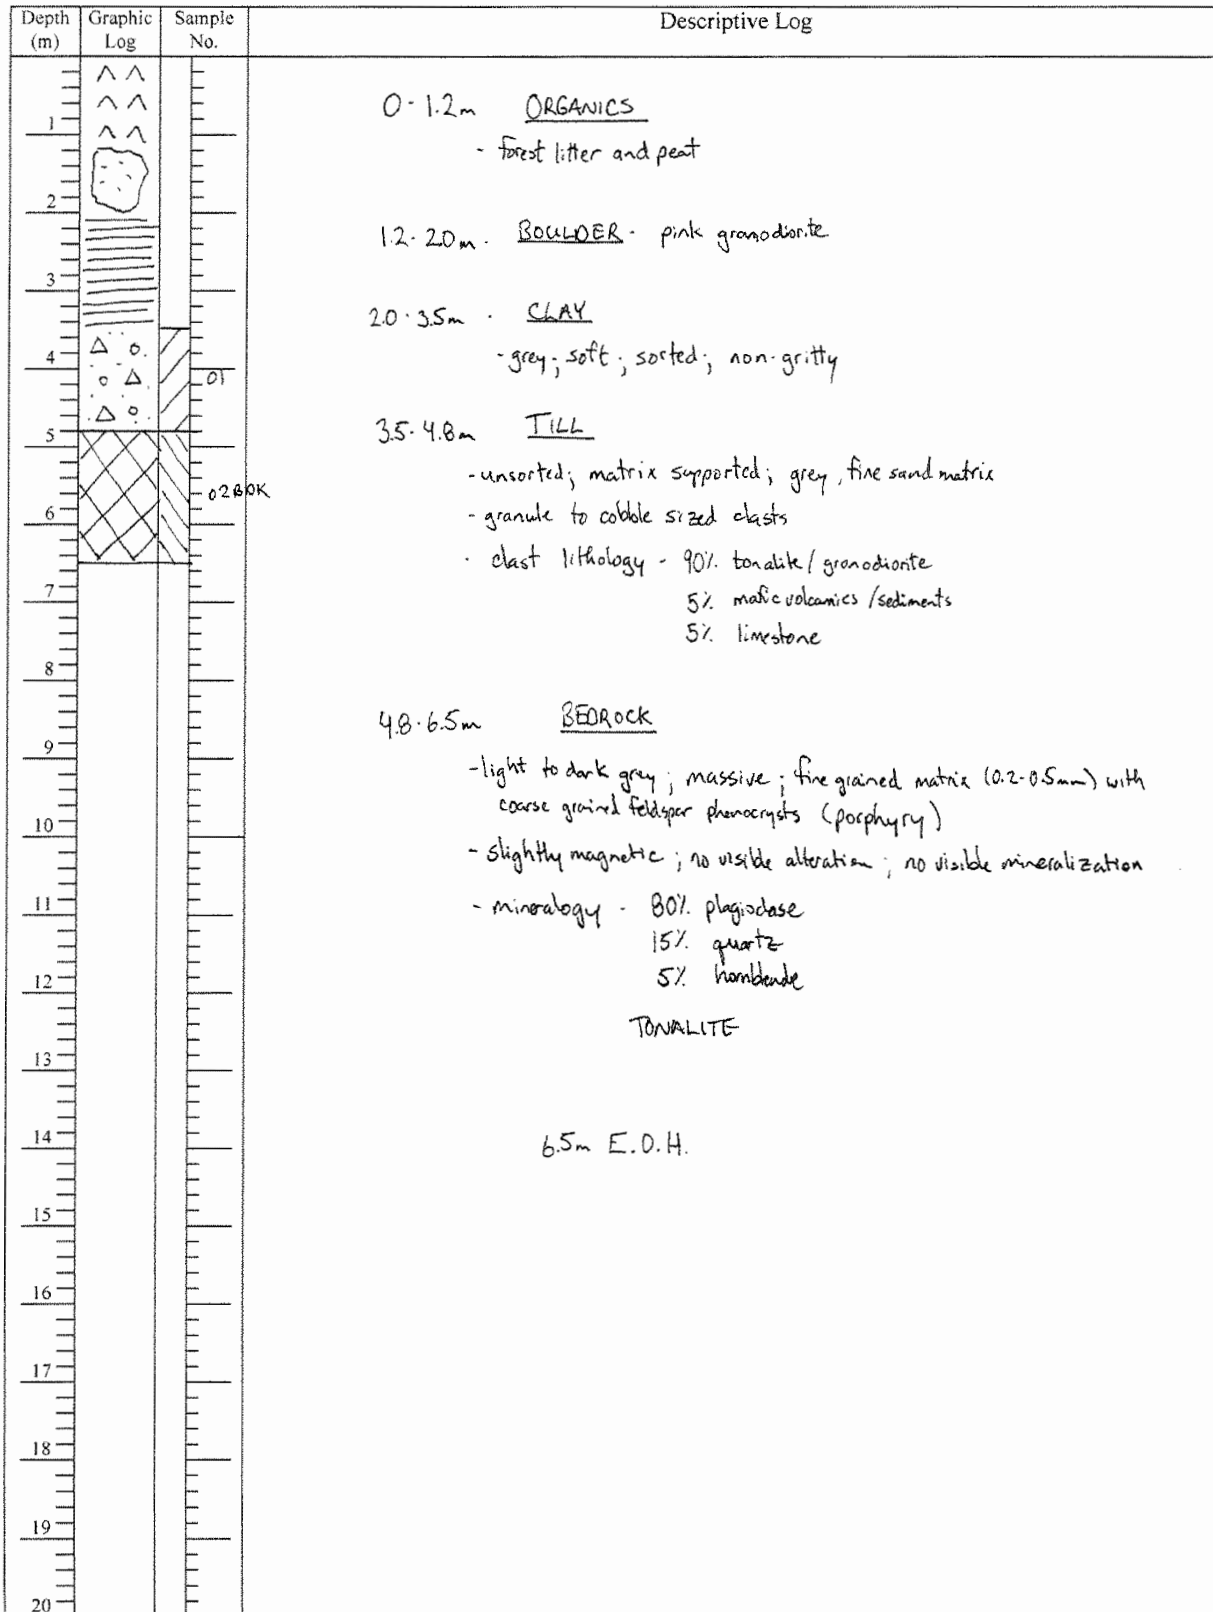 Depth (m)
Graphic Log
Sample No.
Descriptive Log
0-1.2m ORGANICS
- forest litter and peat
1.2-2.0m. BOULDER - pink granodiorite
2.0-3.5m. CLAY
- grey; soft; sorted; non-gritty
3.5-4.8m TILL
- unsorted; matrix supported; grey, fine sand matrix
- granule to cobble sized clasts
- clast lithology - 90% tonalite/granodiorite
5% mafic volcanics/sediments
5% limestone
4.8-6.5m BEDROCK
- light to dark grey; massive; fine grained matrix (0.2-0.5mm) with
coarse grained feldspar phenocrysts (porphyry)
- slightly magnetic; no visible alteration; no visible mineralization
- mineralogy - 80% plagioclase
15% quartz
5% hornblende
TONALITE
6.5m E.O.H.
01
02BDK
1
2
3
4
5
6
7
8
9
10
11
12
13
14
15
16
17
18
19
20